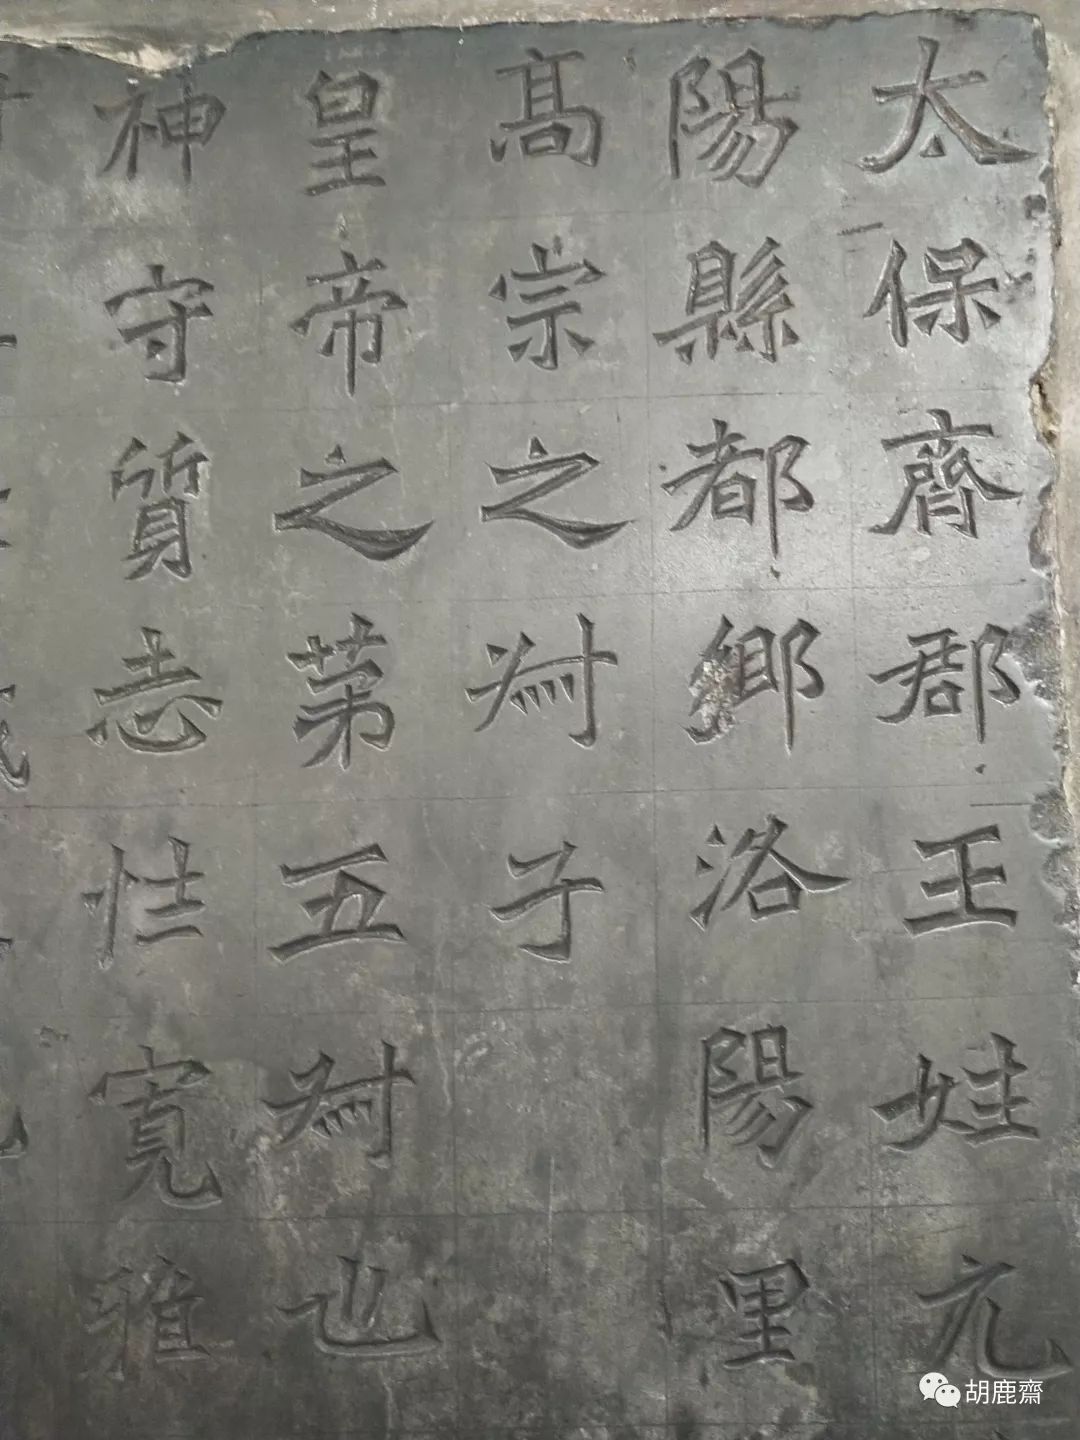 太保齊郡王姓元
陽縣都鄉洛陽里
高宗之𡦗子
皇帝之第五𡦗也
神守質志性寬雅
胡鹿齋